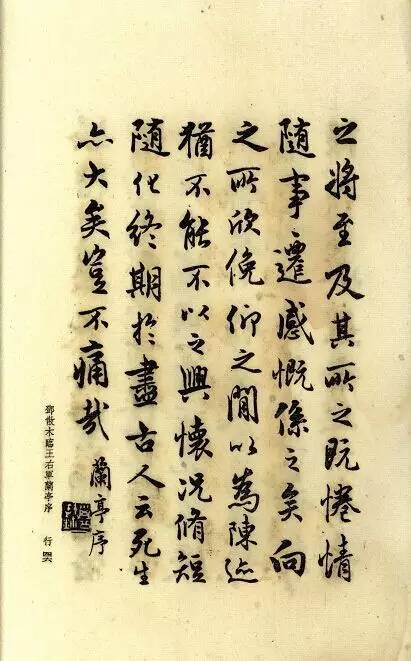 之將至及其所之既惓情
隨事遷感慨係之矣向
之所欣俛仰之閒以為陳迹
猶不能不以之興懷況脩短
隨化終期於盡古人云死生
亦大矣豈不痛哉
蘭亭序
鄧散木臨王右軍蘭亭序 行